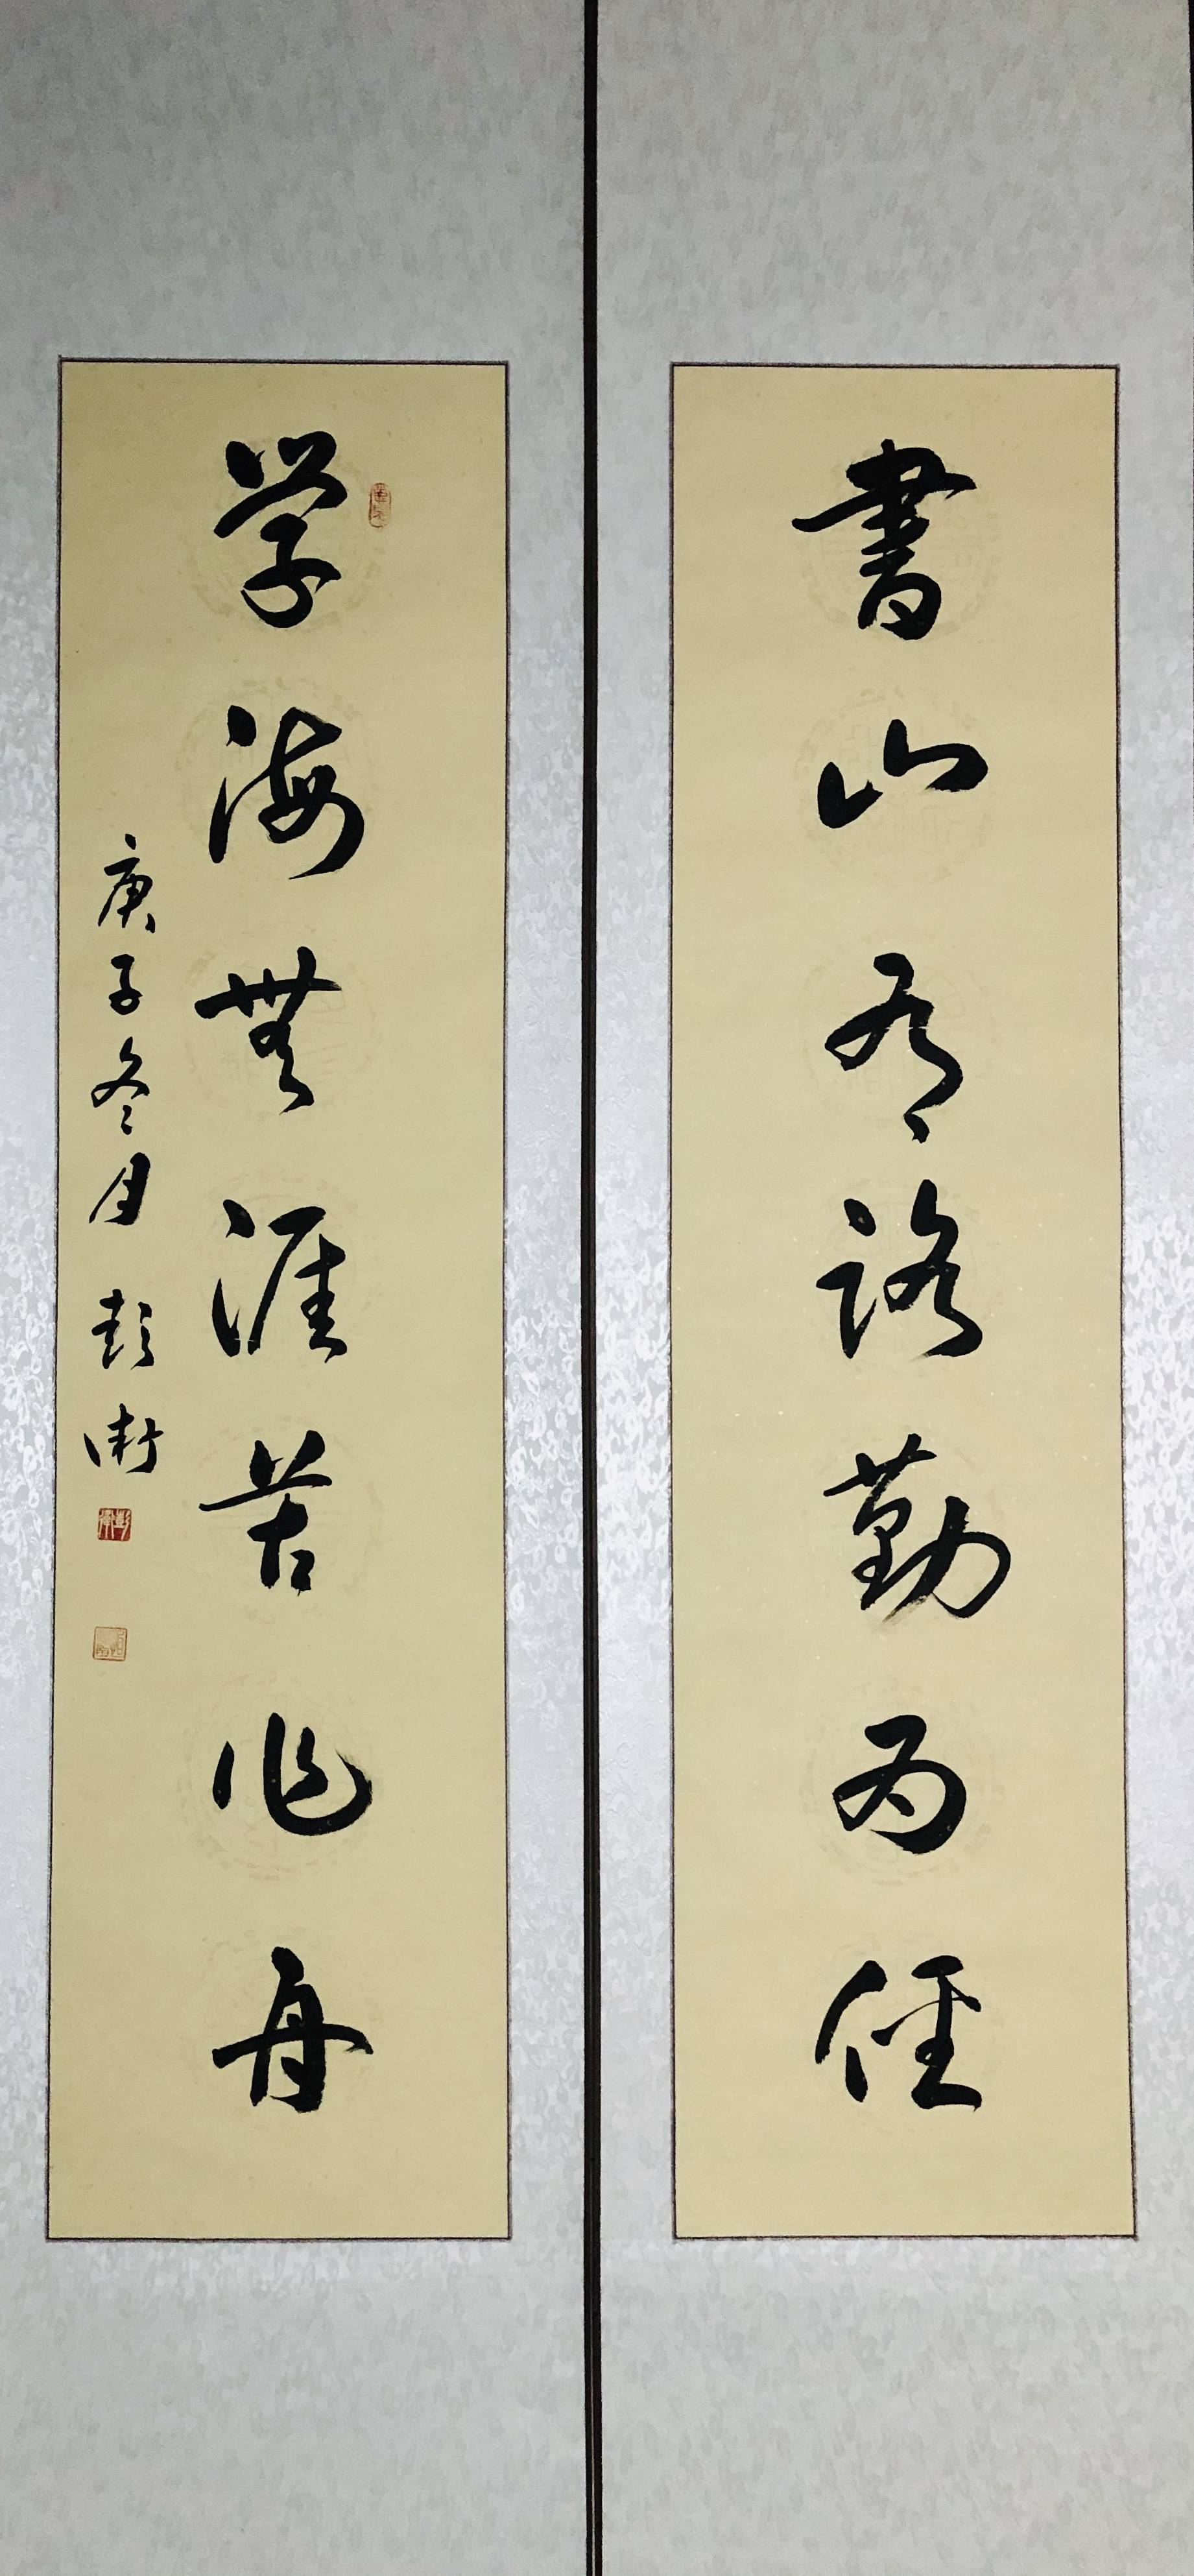 書山有路勤为径
学海無涯苦作舟
庚子冬月 彭衛